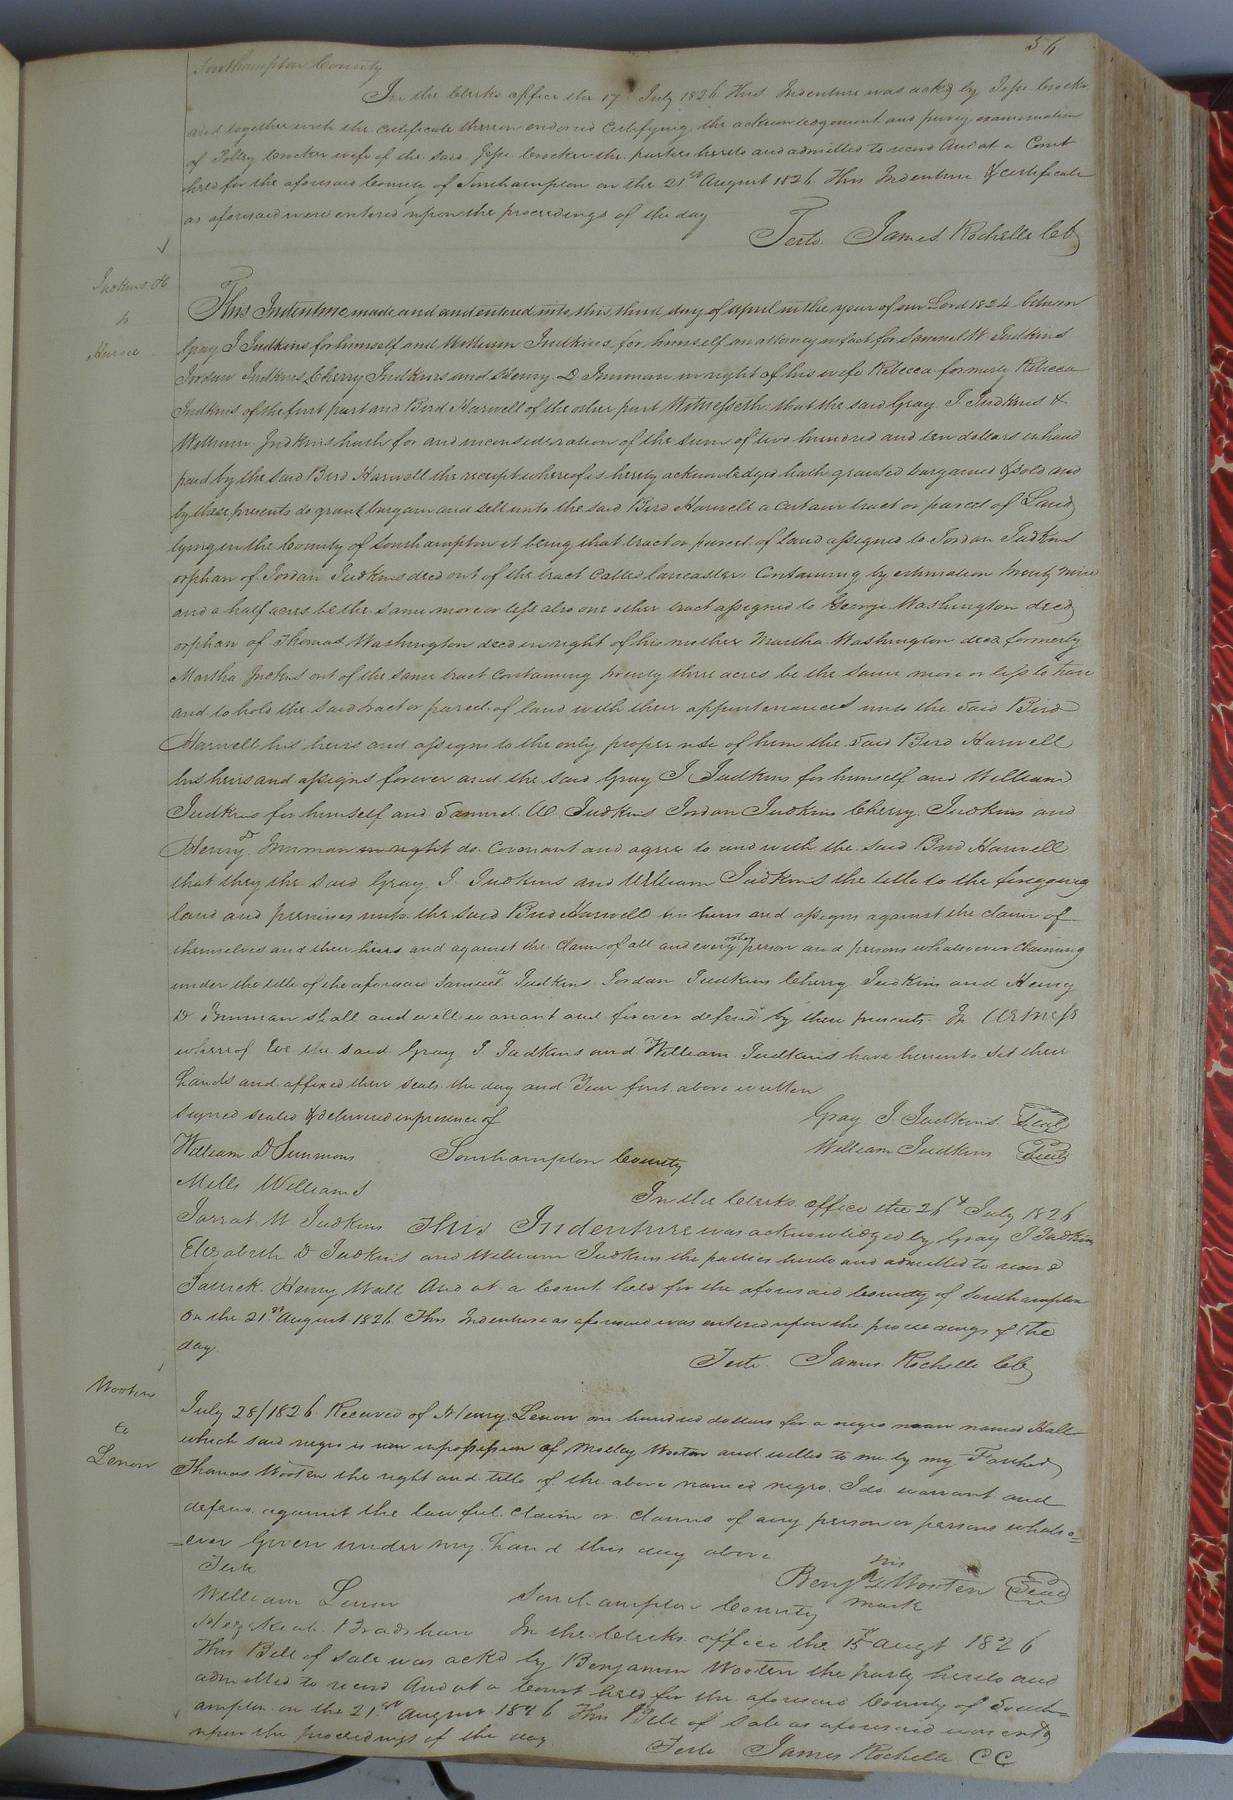 56
Southampton County
In the Clerks office the 17 July 1826 This Indenture was ackd by Jesse Crocker
and together with the certificate thereon endorsed certifying the acknowledgement and privy examination
of Polley Crocker wife of the said Jesse Crocker the parties hereto and admitted to record And at a Court
held for the aforesaid County of Southampton on the 21st August 1826 This Indenture & certificate
as aforesaid were entered upon the proceedings of the day
Teste James Rochelle Cl
Judkins &c
to
This Indenture made and and entered into this third day of april in the year of our Lord 1824 between
Gray J Judkins for himself and William Judkins for himself an attorney in fact for Samuel W Judkins
Jordan Judkins Cherry Judkins and Henry D Inmman in right of his wife Rebecca formerly Rebecca
Judkins of the first part and Bird Harwell of the other part Witnesseth that the said Gray J. Judkins &
William Judkins hath for and in consideration of the sum of two hundred and ten dollars in hand
paid by the said Bird Harwell the receipt whereof is hereby acknowledged hath granted bargained & sold and
by these presents do grant bargain and sell unto the said Bird Harwell a certain tract or parcel of Land
lying in the County of Southampton it being that tract or parcel of land assigned to Jordan Judkins
orphan of Jordan Judkins decd out of the tract called lancasters Containing by estimation twenty nine
and a half acres be the same more or less also one other tract assigned to George Washington decd
orphan of Thomas Washington decd in right of his mother Martha Washington decd formerly
Martha Judkins out of the same tract containing twenty three acres be the same more or less to have
and to hold the said tract or parcel of land with their appurtenances unto the said Bird
Harwell his heirs and assigns to the only proper use of him the said Bird Harwell
his heirs and assigns forever and the said Gray J Judkins for himself and William
Judkins for himself and Samuel W Judkins Jordan Judkins Cherry Judkins and
Henry D Inmman in right do covenant and agree to and with the said Bird Harwell
that they the said Gray J. Judkins and William Judkins the title to the foregoing
land and premises unto the said Bird Harwell his heirs and assigns against the claim of
themselves and their heirs and against the claim of all and every other person and persons whatsoever claiming
under the title of the aforesaid Samuel W Judkins Jordan Judkins Cherry Judkins and Henry
D Inmman shall and will warrant and forever defend by these presents. In Witness
whereof We the said Gray J Judkins and William Judkins have hereunto set their
hands and affixed their seals the day and Year first above written
Signed sealed & delivered in presence of
Gray J Judkins Seal
William D Simmons Southampton County William Judkins Seal
Mills Williams In the Clerks office the 26th July 1826
Jarrat W Judkins This Indenture was acknowledged by Gray J Judkins
Elizabeth D Judkins and William Judkins the parties hereto and admitted to record
Patrick Henry Wall And at a Court held for the aforesaid County of Southampton
on the 21st August 1826 This Indenture as aforesaid was entered upon the proceedings of the
day
Teste James Rochelle Cl
Wooten
to
Lenow
July 28/1826 Received of Henry Lenow one hundred dollars for a negro man named Hall
which said negro is now in possession of Molley Wooten and willed to me by my Farther
Thomas Wooten the right and title of the above named negro I do warrant and
defend against the lawful claim or claims of any person or persons whatso=
=ever Given under my hand this day above
Teste Benjn his Wooten Seal
mark
William Lenow Southampton County
Hezekiah Bradshaw In the Clerks office the 15 augt 1826
This Bill of Sale was ackd by Benjamin Wooten the party hereto and
admitted to record And at a Court held for the aforesaid County of South=
ampton on the 21st August 1826 This Bill of Sale as aforesaid was entd
upon the proceedings of the day
Teste James Rochelle CC